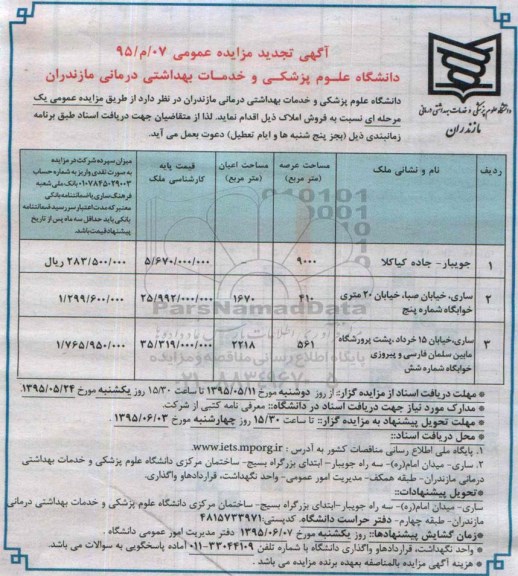 آگهی تجدید مزایده عمومی ۰۷/م/۹۵
دانشگاه علوم پزشکی و خدمات بهداشتی درمانی مازندران
دانشگاه علوم پزشکی و خدمات بهداشتی درمانی
مازندران
دانشگاه علوم پزشکی و خدمات بهداشتی درمانی مازندران در نظر دارد از طریق مزایده عمومی یک
مرحله ای نسبت به فروش املاک ذیل اقدام نماید. لذا از متقاضیان جهت دریافت اسناد طبق برنامه
زمانبندی ذیل (بجز پنج شنبه ها و ایام تعطیل) دعوت بعمل می آید.
ردیف
نام و نشانی ملک
مساحت عرصه (متر مربع)
مساحت اعیان (متر مربع)
قیمت پایه کارشناسی ملک
میزان سپرده شرکت در مزایده
به صورت نقدی واریز به شماره حساب
۰۱۰۷۸۴۵۰۲۹۰۰۳ بانک ملی شعبه
فرهنگ ساری یا ضمانتنامه بانکی
معتبر که مدت اعتبار سررسید ضمانتنامه
بانکی باید حداقل سه ماه پس از تاریخ
پیشنهاد قیمت باشد.
۱ جویبار- جاده کیاکلا ۹۰۰۰ - ۵/۶۷۰/۰۰۰/۰۰۰ ۲۸۳/۵۰۰/۰۰۰ ریال
۲ ساری، خیابان صبا، خیابان ۲۰ متری خوابگاه شماره پنج ۴۱۰ ۱۶۷۰ ۲۵/۹۹۲/۰۰۰/۰۰۰ ۱/۲۹۹/۶۰۰/۰۰۰
۳ ساری، خیابان ۱۵ خرداد، پشت پرورشگاه مابین سلمان فارسی و پیروزی خوابگاه شماره شش ۵۶۱ ۲۲۱۸ ۳۵/۳۱۹/۰۰۰/۰۰۰ ۱/۷۶۵/۹۵۰/۰۰۰
ParsNamadData
پایگاه اطلاع رسانی مناقصه و مزایده
* مهلت دریافت اسناد از مزایده گزار:: از روز دوشنبه مورخ ۱۳۹۵/۰۵/۱۱ تا ساعت ۱۵/۳۰ روز یکشنبه مورخ ۱۳۹۵/۰۵/۲۴.
* مدارک مورد نیاز جهت دریافت اسناد در دانشگاه:: معرفی نامه کتبی از شرکت.
* مهلت تحویل پیشنهاد به مزایده گزار:: تا ساعت ۱۵/۳۰ روز چهارشنبه مورخ ۱۳۹۵/۰۶/۰۳.
* محل دریافت اسناد::
۱. پایگاه ملی اطلاع رسانی مناقصات کشور به آدرس : www.iets.mporg.ir.
۲. ساری- میدان امام(ره)- سه راه جویبار- ابتدای بزرگراه بسیج- ساختمان مرکزی دانشگاه علوم پزشکی و خدمات بهداشتی
درمانی مازندران- طبقه همکف- مدیریت امور عمومی- واحد نگهداشت، قراردادها و واگذاری.
* تحویل پیشنهادات::
ساری- میدان امام(ره)- سه راه جویبار- ابتدای بزرگراه بسیج- ساختمان مرکزی دانشگاه علوم پزشکی و خدمات بهداشتی درمانی
مازندران- طبقه چهارم- دفتر حراست دانشگاه. کدپستی: ۴۸۱۵۷۳۳۹۷۱
* زمان گشایش پیشنهادها:: روز یکشنبه مورخ ۱۳۹۵/۰۶/۰۷ دفتر مدیریت امور عمومی دانشگاه .
* واحد نگهداشت، قراردادها و واگذاری دانشگاه با شماره تلفن ۳۳۰۴۴۱۰۹-۰۱۱ آماده پاسخگویی به سوالات می باشد.
* هزینه آگهی مزایده بالمناصفه بعهده برنده مزایده می باشد.